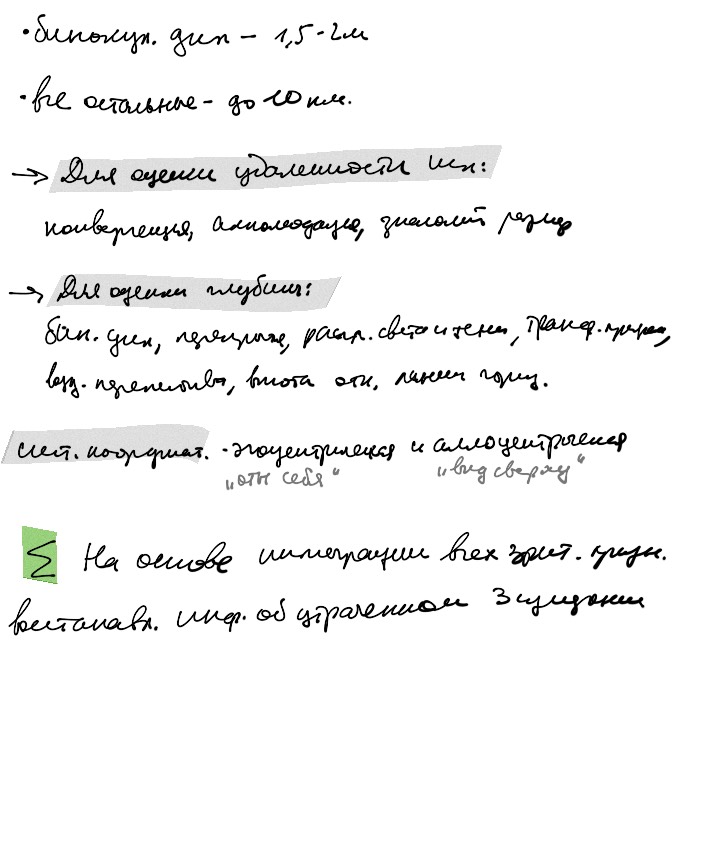 • бинокул. дисп – 1,5-2м
• все остальные – до 10 км.
→ Для оценки удаленности исп:
конвергенция, аккомодация, знакомый размер
→ Для оценки глубины:
бин. дисп, перекрытие, распр. света и тени, трансф. призн,
возд. перспектива, высота отн. линии гориз.
сист. координат. - эгоцентрическая и аллоцентрическая
„от себя“ „вид сверху“
Σ На основе интеграции всех зрит. призн.
востанавл. инф. об утраченном 3 измерении